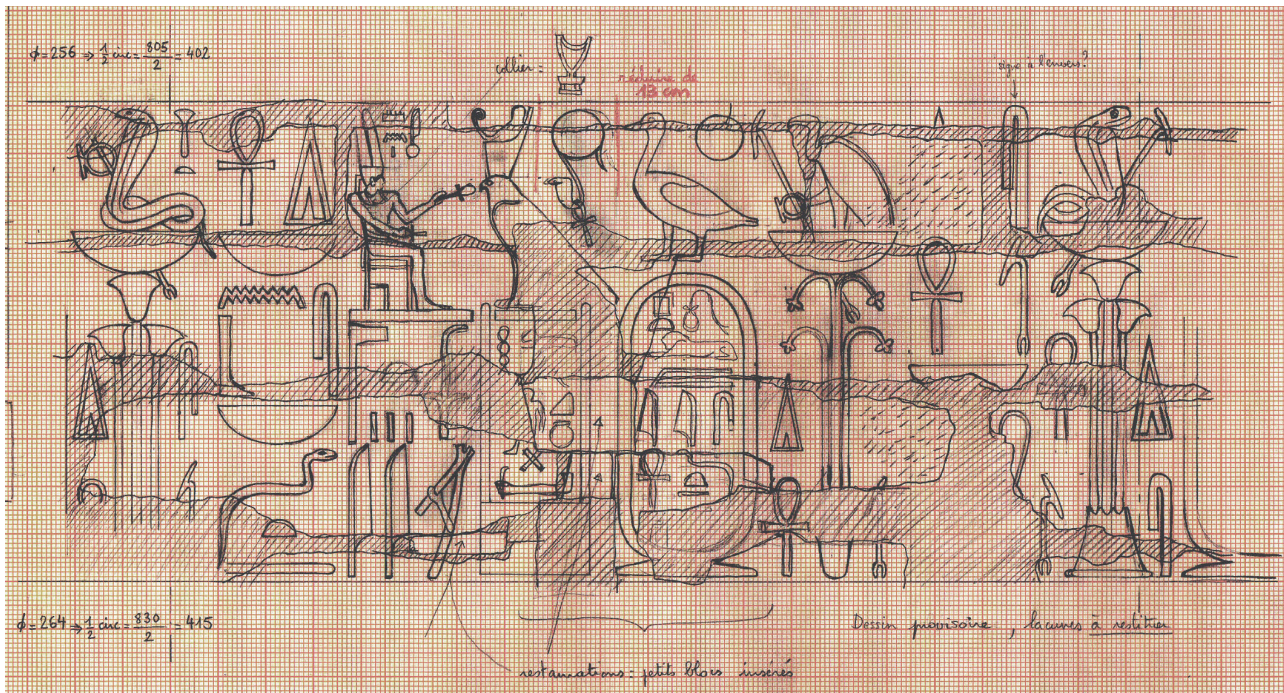 ϕ=256 ⇒ 1/2 circ = 805/2 = 402
collier :
réduire de
13 cm
signe à l'envers?
ϕ=264 ⇒ 1/2 circ = 830/2 = 415
Dessin provisoire, lacunes à restituer
restaurations : petits blocs insérés